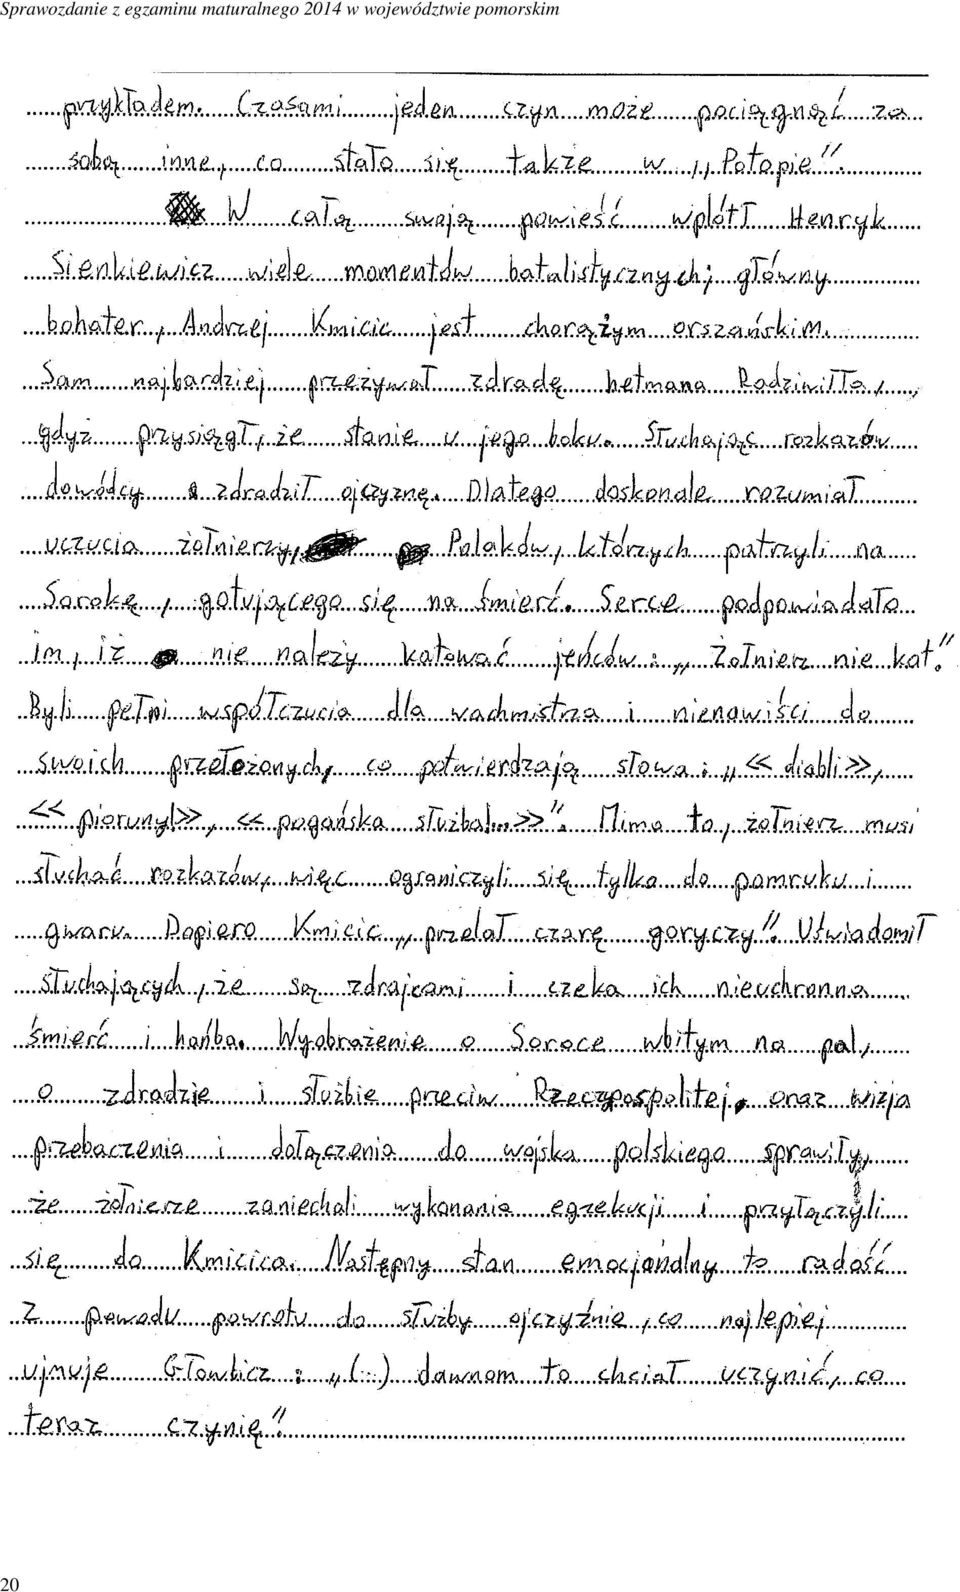 Sprawozdanie z egzaminu maturalnego 2014 w województwie pomorskim
przykładem. Czasami jeden czyn może pociągnąć za
sobą inne, co stało się także w ,,Potopie".
W całą swoją powieść wplótł Henryk
Sienkiewicz wiele momentów batalistycznych; główny
bohater, Andrzej Kmicic jest chorążym orszańskim.
Sam najbardziej przeżywał zdradę hetmana Radziwiłła,
gdyż przysiągł, że stanie u jego boku. Słuchając rozkazów
dowódcy zdradził ojczyznę. Dlatego doskonale rozumiał
uczucia żołnierzy, Polaków, których patrzyli na
Sorokę, gotującego się na śmierć. Serce podpowiadało
im, iż nie należy katować jeńców: ,,Żołnierz nie kat."
Byli pełni współczucia dla wachmistrza i nienawiści do
swoich przełożonych, co potwierdzają słowa: ,,<<diabli>>,
<<pioruny!>>, <<pogańska służba!...>>". Mimo to, żołnierz musi
słuchać rozkazów, więc ograniczyli się tylko do pomruku i
gwaru. Dopiero Kmicic ,,przelał czarę goryczy". Uświadomił
słuchających, że są zdrajcami i czeka ich nieuchronna
śmierć i hańba. Wyobrażenie o Soroce wbitym na pal,
o zdradzie i służbie przeciw Rzeczpospolitej, oraz wizja
przebaczenia i dołączenia do wojska polskiego sprawiły,
że żołnierze zaniechali wykonania egzekucji i przyłączyli
się do Kmicica. Następny stan emocjonalny to radość
z powodu powrotu do służby ojczyźnie, co najlepiej
ujmuje Głowbicz: ,,(...) dawnom to chciał uczynić, co
teraz czynię".
20